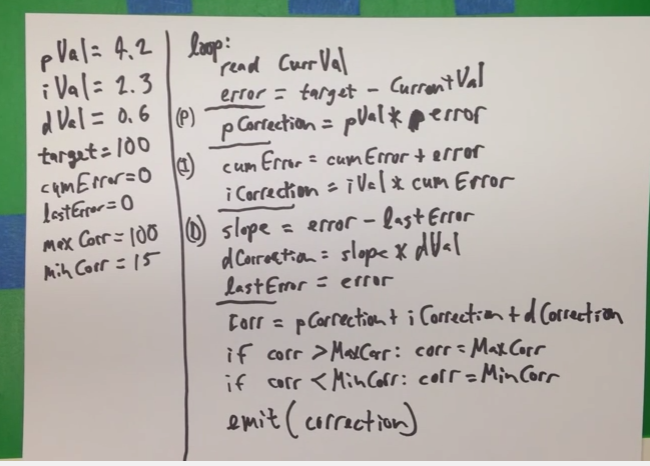 pVal = 4.2
iVal = 2.3
dVal = 0.6
target = 100
cumError = 0
lastError = 0
max Corr = 100
Min Corr = 15
loop:
read CurrVal
error = target - CurrentVal
(P) pCorrection = pVal * error
(I) cumError = cumError + error
iCorrection = iVal * cumError
(D) slope = error - lastError
dCorrection = slope * dVal
lastError = error
Corr = pCorrection + iCorrection + dCorrection
if corr > MaxCorr: corr = MaxCorr
if corr < MinCorr: corr = MinCorr
emit (correction)